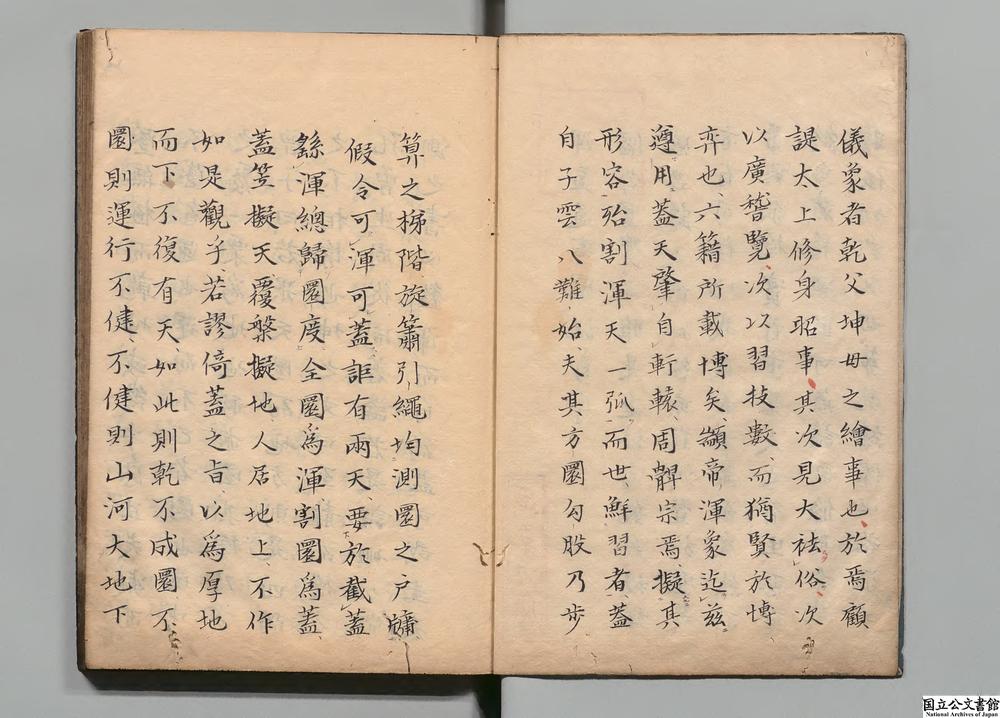 儀象者乾父坤母之繪事也於焉顧
諟太上修身昭事其次見大袪俗次
以廣稽覽次以習技數而猶賢於博
弈也六籍所載博矣顓帝渾象迄茲
遵用蓋天肇自軒轅周髀宗焉擬其
形容殆割渾天一弧而世鮮習者蓋
自子雲八難始夫其方圜勾股乃步
算之梯階旋簫引繩均測圜之户牖
假令可渾可蓋詎有兩天要於截蓋
繇渾總歸圜度全圜爲渾割圜爲蓋
蓋笠擬天覆槃擬地人居地上不作
如是觀乎若謬倚蓋之旨以爲厚地
而下不復有天如此則乾不成圜不
圜則運行不健不健則山河大地下
国立公文書館
National Archives of Japan